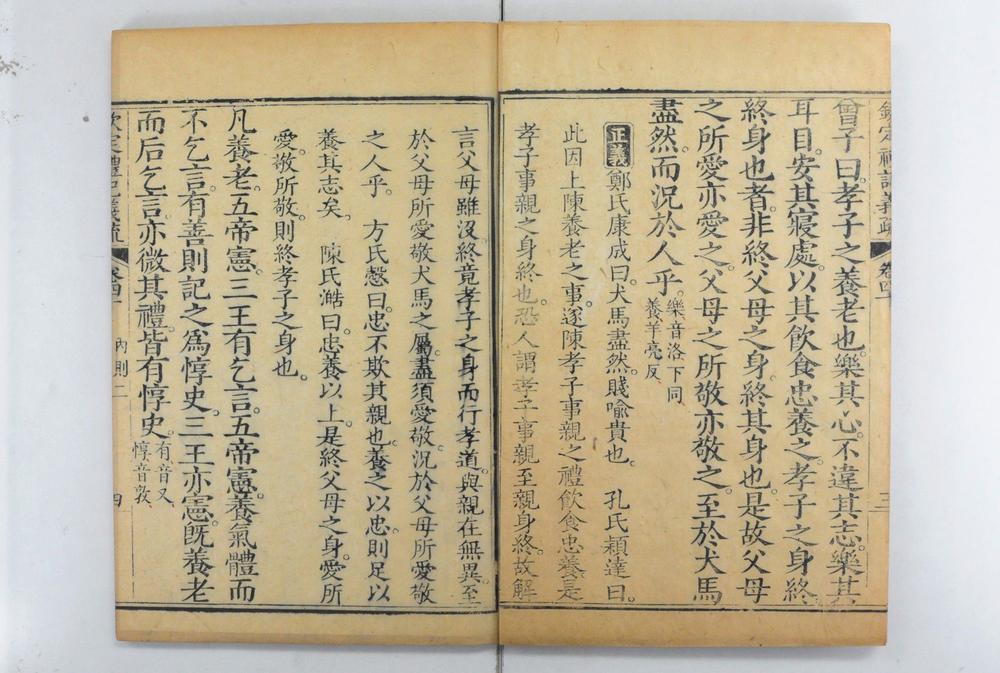 欽定禮記義疏 卷四十 三
曾子曰孝子之養老也樂其心不違其志樂其
耳目安其寢處以其飲食忠養之孝子之身終
終身也者非終父母之身終其身也是故父母
之所愛亦愛之父母之所敬亦敬之至於犬馬
盡然而況於人乎樂音洛下同
養羊亮反
正義鄭氏康成曰犬馬盡然賤喻貴也 孔氏穎達曰
此因上陳養老之事遂陳孝子事親之禮飲食忠養是
孝子事親之身終也恐人謂孝子事親至親身終故解
言父母雖沒終竟孝子之身而行孝道與親在無異至
於父母所愛敬犬馬之屬盡須愛敬況於父母所愛敬
之人乎 方氏慤曰忠不欺其親也養之以忠則足以
養其志矣 陳氏澔曰忠養以上是終父母之身愛所
愛敬所敬則終孝子之身也
凡養老五帝憲三王有乞言五帝憲養氣體而
不乞言有善則記之為惇史三王亦憲既養老
而后乞言亦微其禮皆有惇史有音又
惇音敦
欽定禮記義疏 卷四十 內則二 四